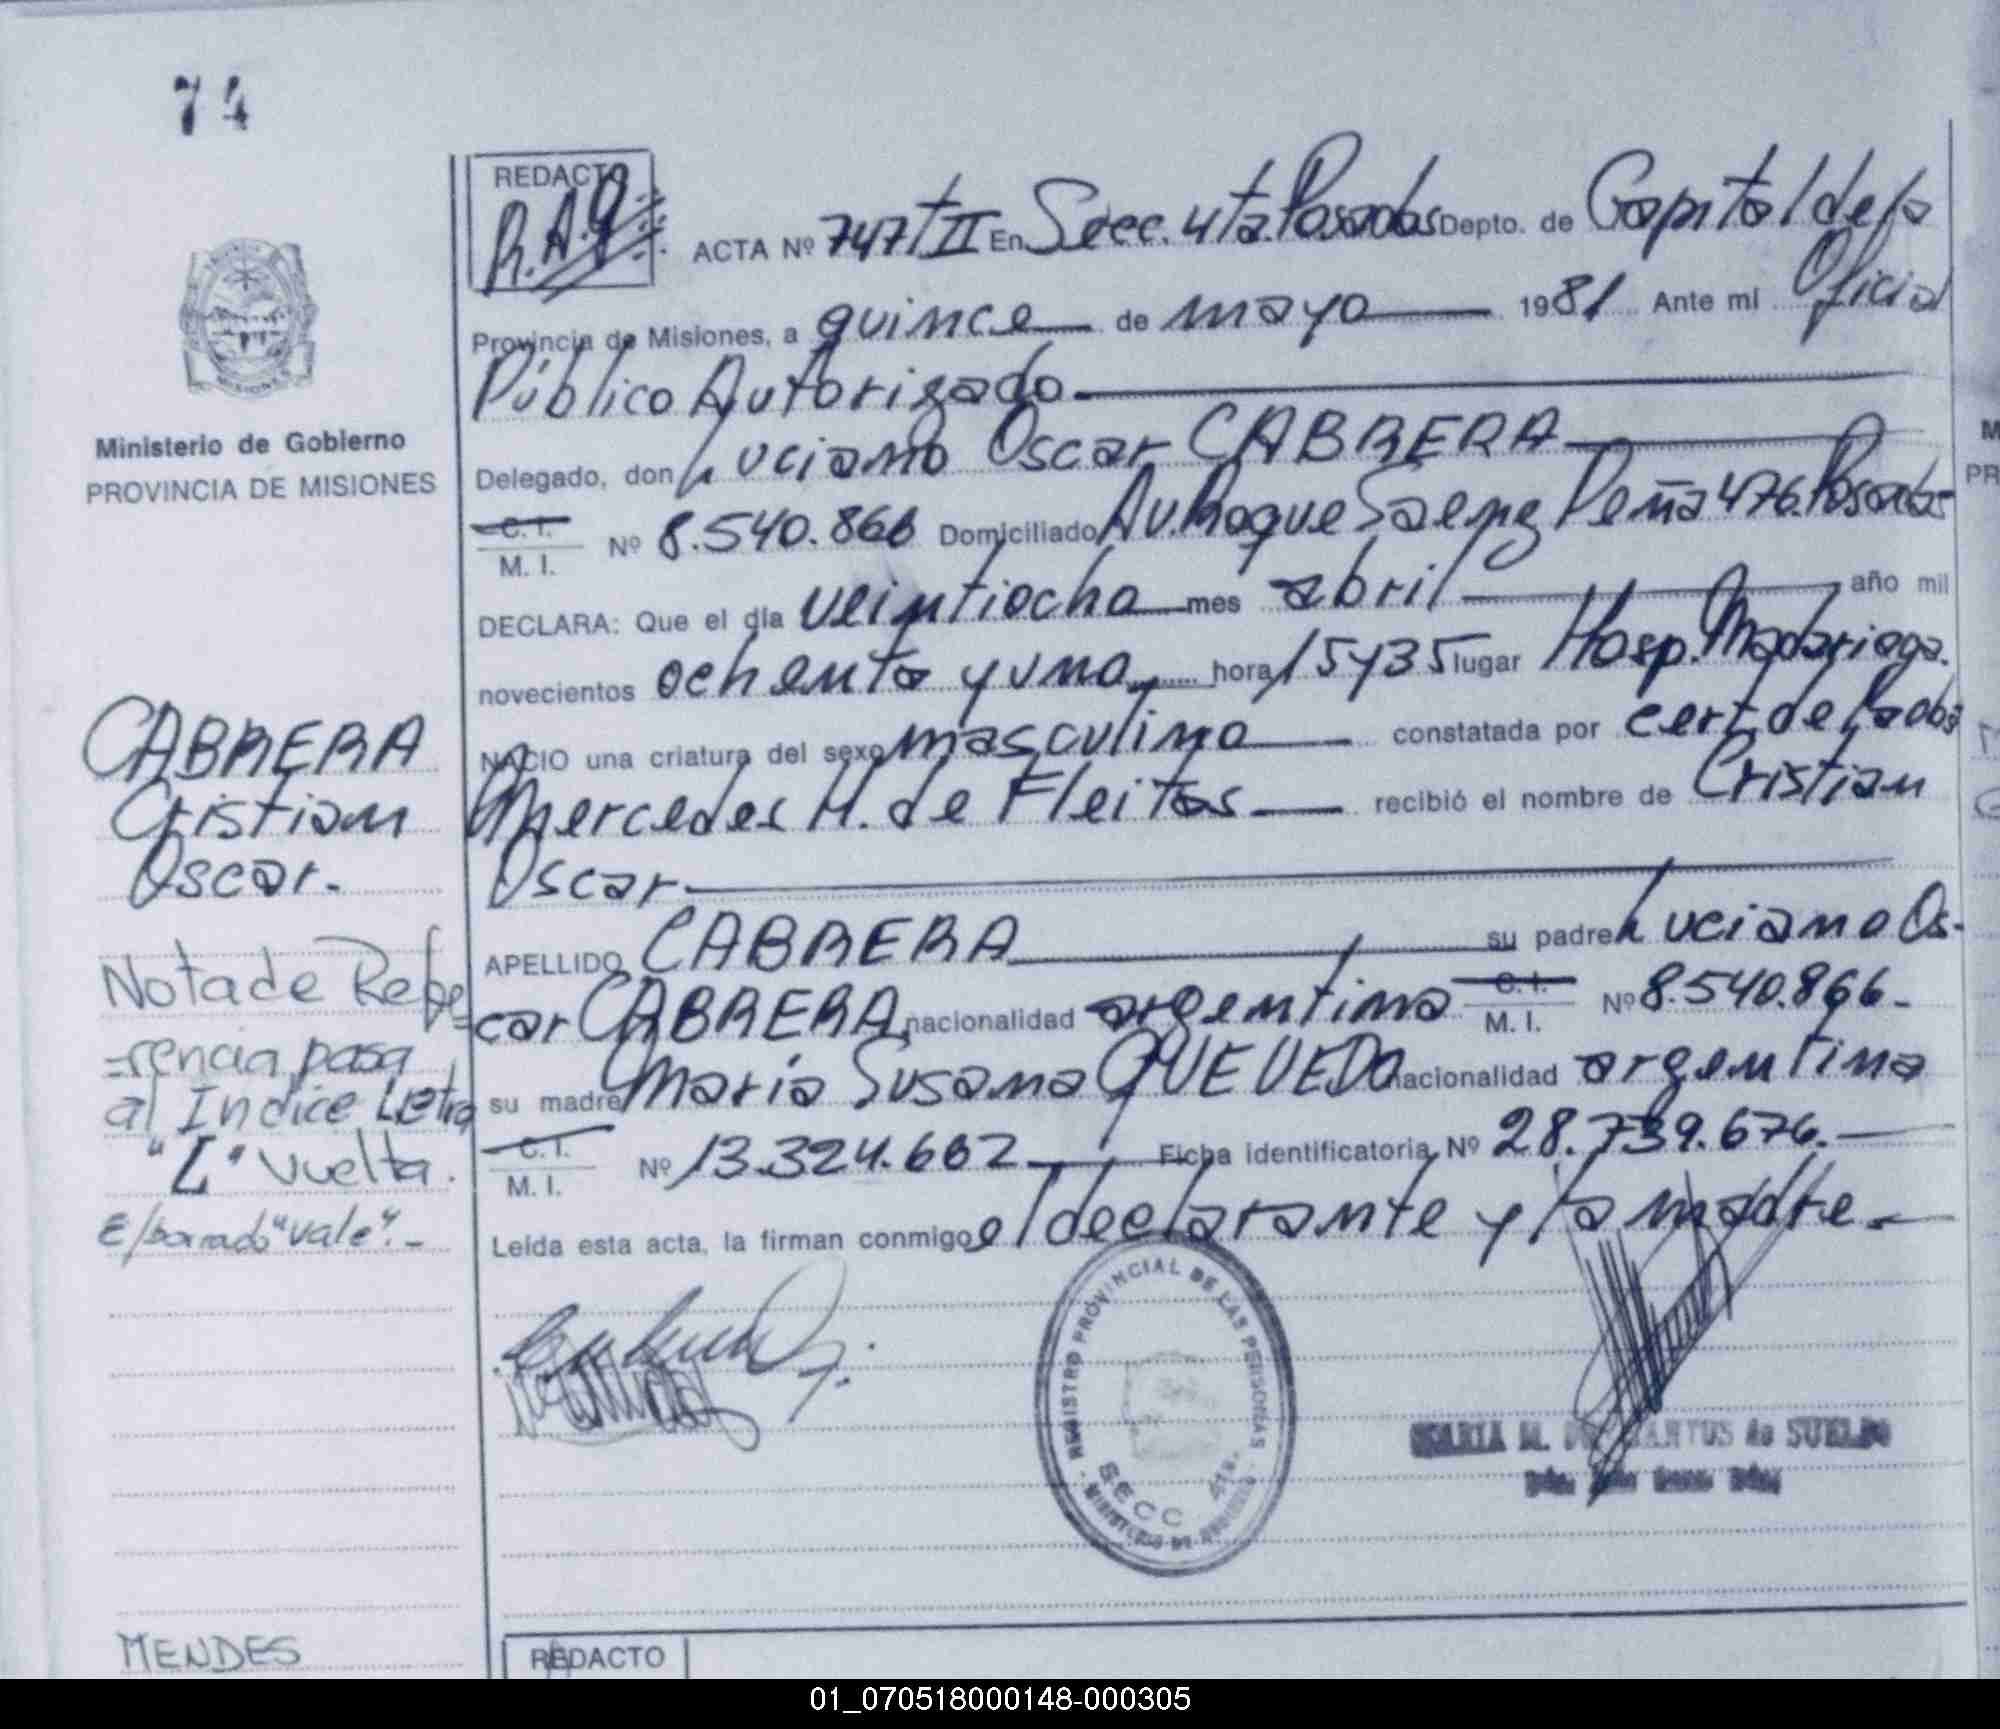 74
REDACTO
R.A.Q.
ACTA Nº 747 T II En Secc. 4ta. Posadas Depto. de Capital de la
Provincia de Misiones, a quince de mayo 1981 Ante mí Oficial
Público Autorizado
Delegado, don Luciano Oscar CABRERA
C. I.
M. I. Nº 8.540.866 Domiciliado Av. Roque Saenz Peña 476. Posadas
DECLARA: Que el día veintiocho mes abril año mil
novecientos ochenta y uno hora 15 y 35 lugar Hosp. Madariaga.
NACIO una criatura del sexo masculino constatada por cert. de la obs
Mercedes H. de Fleitas recibió el nombre de Cristian
Oscar.
APELLIDO CABRERA su padre Luciano Os-
car CABRERA nacionalidad argentina C. I. M. I. Nº 8.540.866.
su madre María Susana QUEVEDO nacionalidad argentina
C. I.
M. I. Nº 13.324.662 Ficha identificatoria Nº 28.739.676.
Leída esta acta, la firman conmigo el declarante y la madre.
Ministerio de Gobierno
PROVINCIA DE MISIONES
MISIONES
CABRERA
Cristian
Oscar.
Nota de Refe
=rencia pasa
al Indice Letra
"L" vuelta.
E/borrado "vale".-
REGISTRO PROVINCIAL DE LAS PERSONAS
SECC 4TA.
MINISTERIO DE GOBIERNO
MARIA M. SANTOS de SUELDO
MENDES
REDACTO
M
PR
01_070518000148-000305